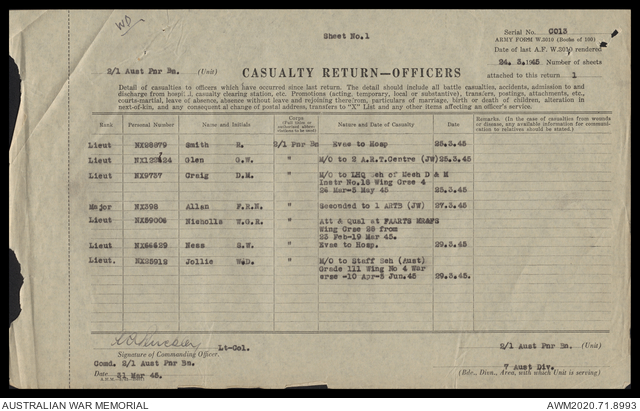 WD
Sheet No.1
Serial No. CC13
ARMY FORM W.3010 (Books of 100)
Date of last A.F. W.3010 rendered
24. 3. 1945 Number of sheets
attached to this return 1
2/1 Aust Pnr Bn. (Unit)
CASUALTY RETURN—OFFICERS
Detail of casualties to officers which have occurred since last return. The detail should include all battle casualties, accidents, admission to and
discharge from hospital, casualty clearing station, etc. Promotions (acting, temporary, local or substantive), transfers, postings, attachments, etc.,
courts-martial, leave of absence, absence without leave and rejoining therefrom, particulars of marriage, birth or death of children, alteration in
next-of-kin, and any consequential change of postal address, transfers to "X" List and any other items affecting an officer's service.
Rank Personal Number Name and Initials Corps Nature and Date of Casualty Date Remarks. (In the case of casualties from wounds or disease, any available information for communication to relatives should be stated.)
Lieut NX28879 Smith H. 2/1 Pnr Bn Evac to Hosp 25.3.45
Lieut Glen G.W. " M/O to 2 A.R.T.Centre (JW) 25.3.45
Lieut NX9737 Craig D.M. " M/O to LHQ Sch of Mech D & M
Instr No.16 Wing Crse 4
26 Mar-5 May 45 25.3.45
Major NX398 Allen F.R.N. Seconded to 1 ARTB (JW) 27.3.45
Lieut NX59006 Nicholls W.G.R. " Att & Qual at
Wing Crse 28 from
23 Feb-19 Mar 45.
Lieut Ness S.W. " Evac to Hosp. 29.3.45
Lieut. NX25912 Jollie W.D. " M/O to Staff Sch (Aust)
Grade 111 Wing No 4 War
crse -10 Apr-5 Jun.45 29.3.45
Lt-Col.
Signature of Commanding Officer.
Comd. 2/1 Aust Pnr Bn.
Date 31 Mar 45.
2/1 Aust Pnr Bn. (Unit)
7 Aust Div.
(Bde., Divn., Area, with which Unit is serving)
AUSTRALIAN WAR MEMORIAL
AWM2020.71.8993